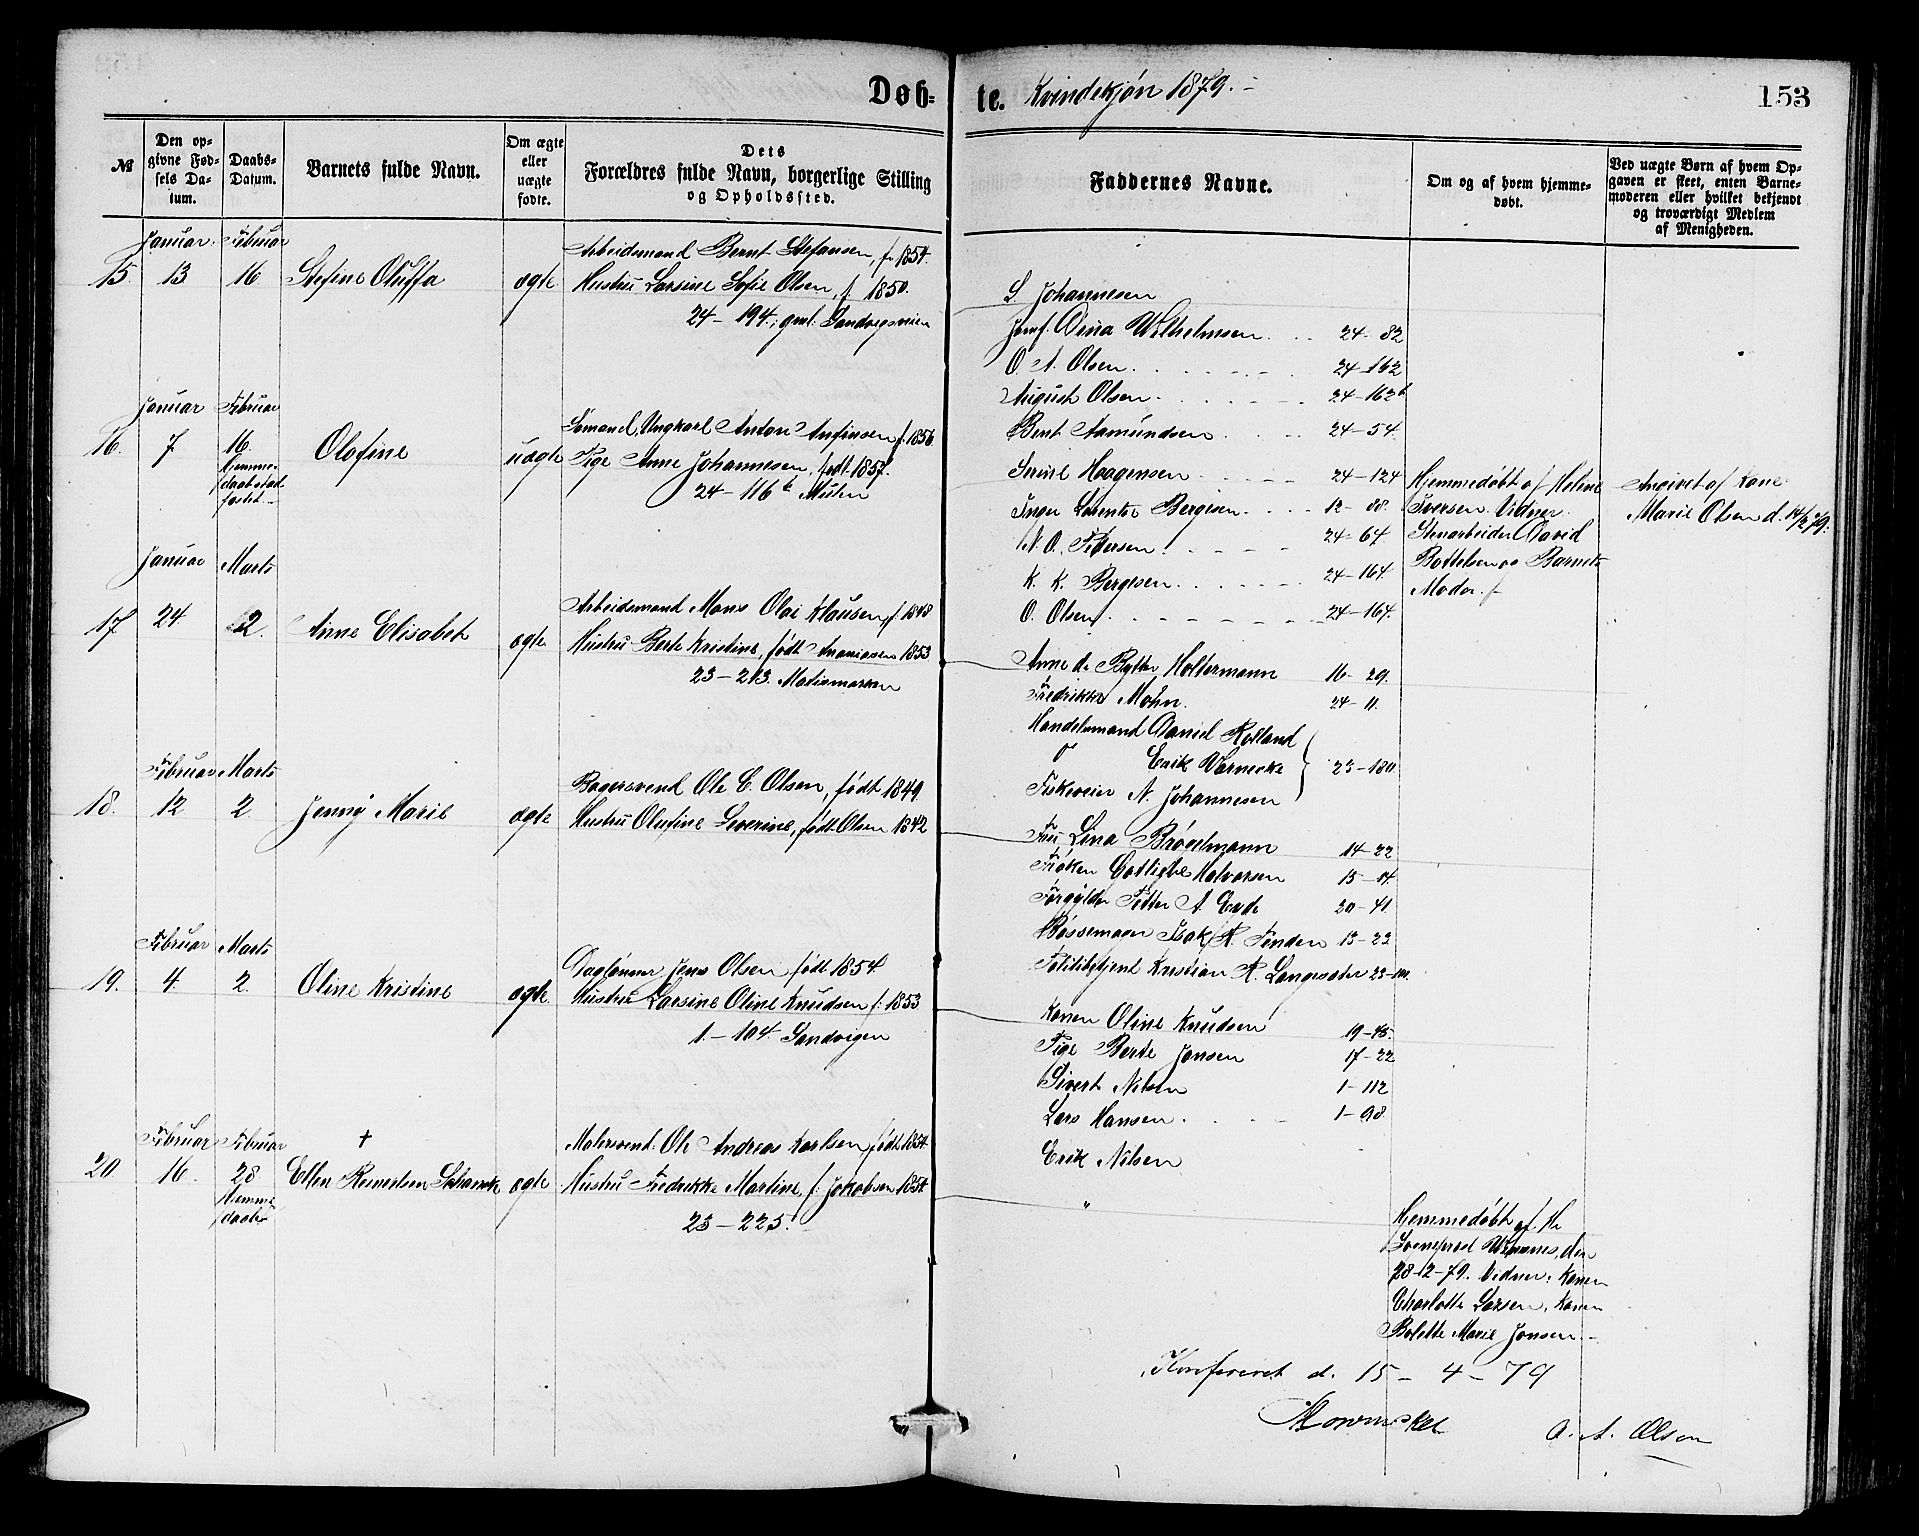 Døb=
te. Kvindekjøn 1879.-
153
№
Den op-
givne Fød-
sels Da-
tum.
Daabs-
Datum.
Barnets fulde Navn.
Om ægte
eller
uægte
fødte.
Dets
Forældres fulde Navn, borgerlige Stilling
og Opholdssted.
Faddernes Navne.
Om og af hvem hjemme-
døbt.
Ved uægte Børn af hvem Op-
gaven er skeet, enten Barne-
moderen eller hvilket bekjendt
og troværdigt Medlem
af Menigheden.
Januar. Februar Arbeidsmand Bernt Stefansen, f. 1854.
15. 13 16 Stefine Oluffa ægte Hustru Larsine Sofie Olsen, f. 1850.
24-194, gml. Sandvigsveien
S. Johannesen
Jomf. Dina Wilhelmsen 24-82
O. A. Olsen 24-162
August Olsen 24-162b
Bent Aamundsen 24-54
Januar Februar Sømand, Ungkarl Anton Anfinsen f. 1856
16. 7 16 Olofine uægte Pige Anne Johannesen, født 1857.
Hjemme-
daab stad-
fæstet
24-116 Mulen
Haagensen 24-124
Inger Lorentse Bergesen 12-88.
N. O. Petersen 24-64
K. K. Bergesen 24-164
O. Olsen 24-164.
Hjemmedøbt af Helene
Iversen. Vidner.
Stenarbeider David
Bottelsen og Barnets
Moder.
Angivet af Kone
Marie Olsen d. 14/2 79.
Januar Marts
17 24 2. Anne Elisabet ægte Arbeidsmand Mons Olai Klausen f. 1848
Hustru Berte Kristine, født Ananiasen 1853
23-213.
Anne de Bytte Holtermann 16-29.
Fredrikke Mohn. 24-11.
Handelsmand Daniel Rolland
Erik Warnecke 23-180
N. Johannesen
Februar Marts
18. 12 2 Jenny Marie ægte Bagersvend Ole C. Olsen, født 1849.
Hustru Olufine Severine, født Olsen 1842
Fru Lina Brøelmann 14-22
Frøken Gotliebe Halvorsen 15-14.
Forgylder Petter A. Eide 20-41
Bøssemager Isak R. Finden 13-23
Politibetjent Kristian R. Langesæter
Februar Marts
19. 4. 2. Oline Kristine ægte Dagløner Jens Olsen født 1854
Hustru Larsine Oline Knudsen f. 1853
1.-104. Sandvigen
Konen Oline Knudsen 19-45.
Pige Berte Jansen 17-22
Sivert Nilsen 1-112
Lars Hansen 1-98
Erik Nilsen
Februar Februar †
20. 16. 28 Ellen Schanck ægte Malersvend Ole Andreas Karlsen, født 1854.
Hjemme-
daab
Hustru Fredrikke Martine, f. Jakobsen 1854
23-225.
"
Hjemmedøbt af Hr
28-2-79. Vidner: Konen
Charlotte Larsen, Konen
Bolette Marie Jansen.-
Konfereret d. 15-4-79
A. A. Olsen